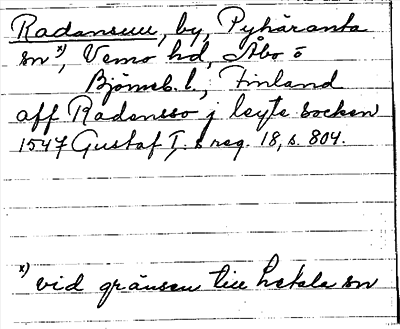 Radansuu, by, Pyhäranta
sn x), Vemo hd, Åbo o
Björneb. l., Finland
aff Radansso j leyte socken
1547 Gustaf I:s reg. 18, s. 804.
x) vid gränsen till Letala sn